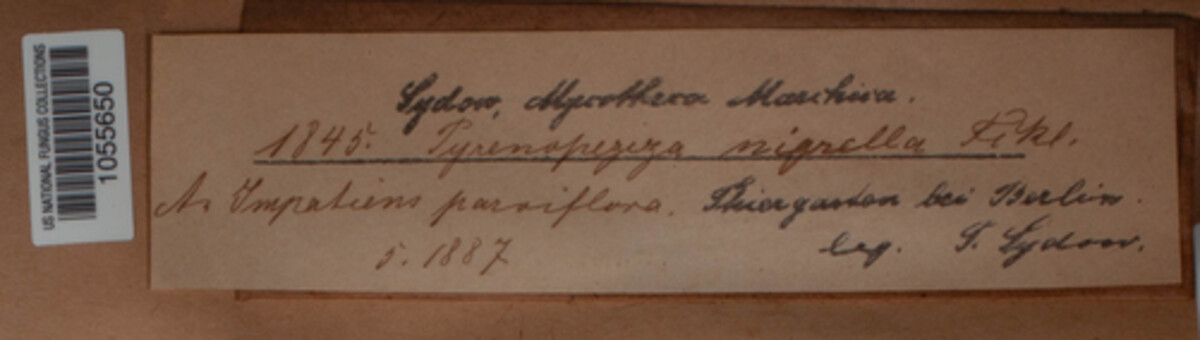 US NATIONAL FUNGUS COLLECTIONS
1055650
Sydow, Mycotheca Marchica.
1845. Pyrenopeziza nigrella Fckl.
An Impatiens parviflora. Thiergarten bei Berlin.
5. 1887 leg. P. Sydow.